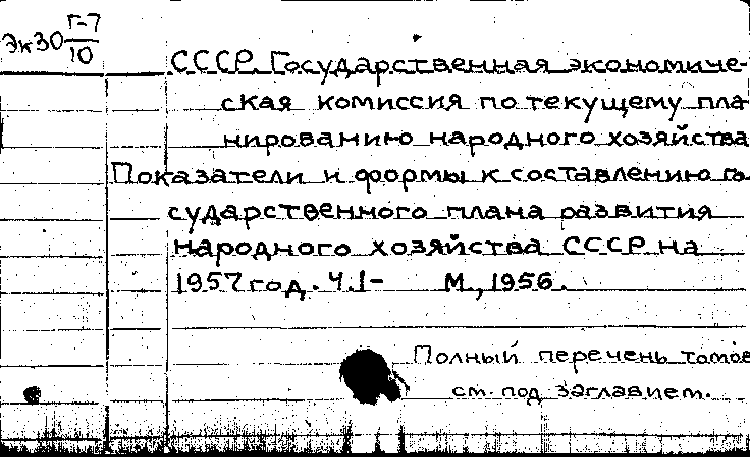 Эк30 Г-7/10
СССР. Государственная экономиче-
ская комиссия по текущему пла-
нированию народного хозяйства
Показатели и формы к составлению го-
сударственного плана развития
народного хозяйства СССР на
1957 год. Ч.1- М., 1956.
Полный перечень томов
см. под заглавием.